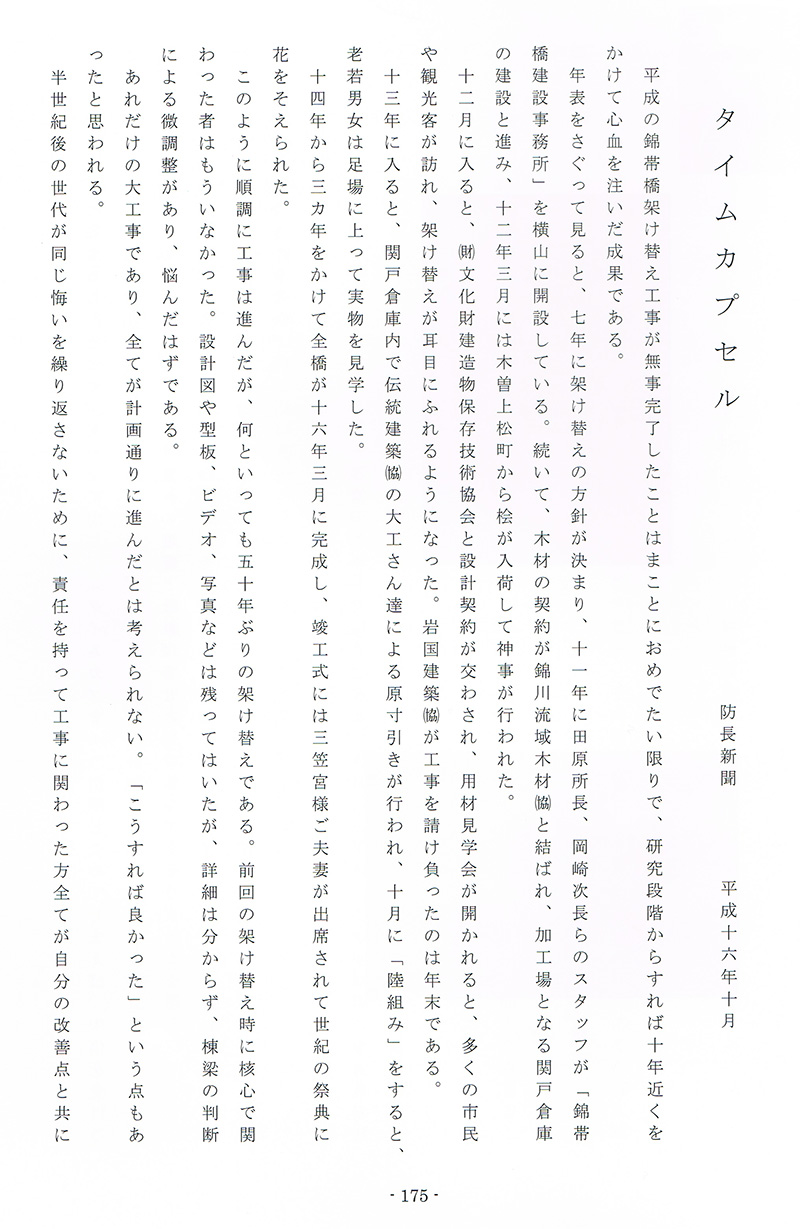 タイムカプセル
防長新聞　　平成十六年十月
　平成の錦帯橋架け替え工事が無事完了したことはまことにおめでたい限りで、研究段階からすれば十年近くを
かけて心血を注いだ成果である。
　年表をさぐって見ると、七年に架け替えの方針が決まり、十一年に田原所長、岡崎次長らのスタッフが「錦帯
橋建設事務所」を横山に開設している。続いて、木材の契約が錦川流域木材㈿と結ばれ、加工場となる関戸倉庫
の建設と進み、十二年三月には木曽上松町から桧が入荷して神事が行われた。
　十二月に入ると、㈶文化財建造物保存技術協会と設計契約が交わされ、用材見学会が開かれると、多くの市民
や観光客が訪れ、架け替えが耳目にふれるようになった。岩国建築㈿が工事を請け負ったのは年末である。
　十三年に入ると、関戸倉庫内で伝統建築㈿の大工さん達による原寸引きが行われ、十月に「陸組み」をすると、
老若男女は足場に上って実物を見学した。
　十四年から三カ年をかけて全橋が十六年三月に完成し、竣工式には三笠宮様ご夫妻が出席されて世紀の祭典に
花をそえられた。
　このように順調に工事は進んだが、何といっても五十年ぶりの架け替えである。前回の架け替え時に核心で関
わった者はもういなかった。設計図や型板、ビデオ、写真などは残ってはいたが、詳細は分からず、棟梁の判断
による微調整があり、悩んだはずである。
　あれだけの大工事であり、全てが計画通りに進んだとは考えられない。「こうすれば良かった」という点もあ
ったと思われる。
　半世紀後の世代が同じ悔いを繰り返さないために、責任を持って工事に関わった方全てが自分の改善点と共に
- 175 -